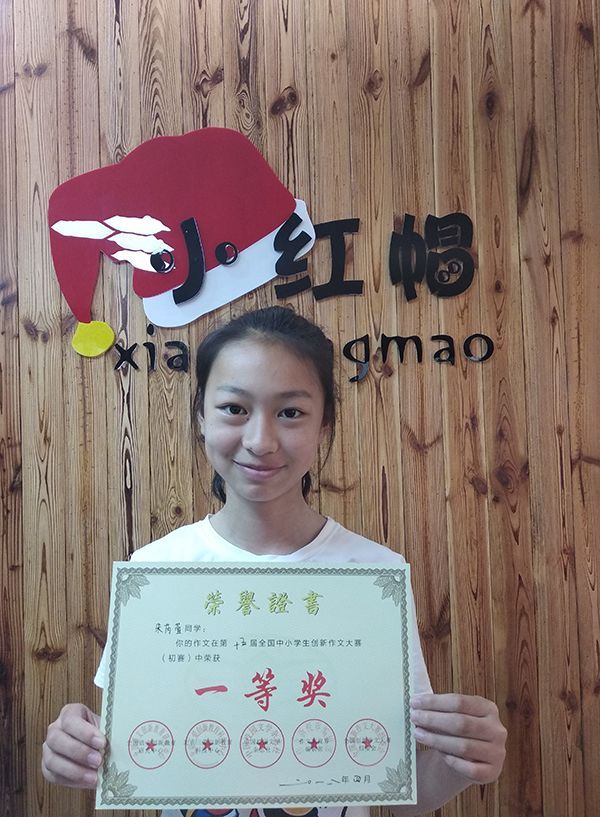 小红帽
xia gmao
荣誉證書
朱芮萱同学：
你的作文在第 届全国中小学生创新作文大赛
（初赛）中荣获
一等奖
二〇一八年四月